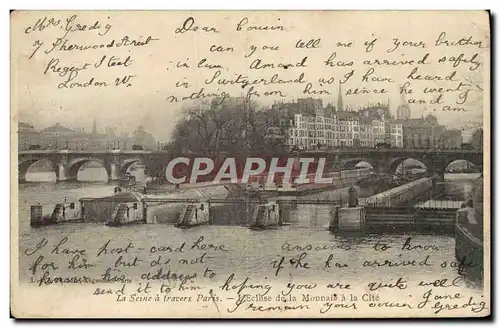 Mrs. Gredig
7 Pherwood Street
Regent Street
London W.
Dear Cousin
can you tell me if your brother
in law Amand has arrived safely
in Switzerland as I have heard
nothing from him since he went
and I am
CPARAMA
I have post-card here
for him but do not
have his address to
send it to him
anxious to know
if he has arrived safe
hoping you are quite well
I remain your cousin Jane Gredig
La Seine à travers Paris. - L'Ecluse de la Monnaie à la Cité